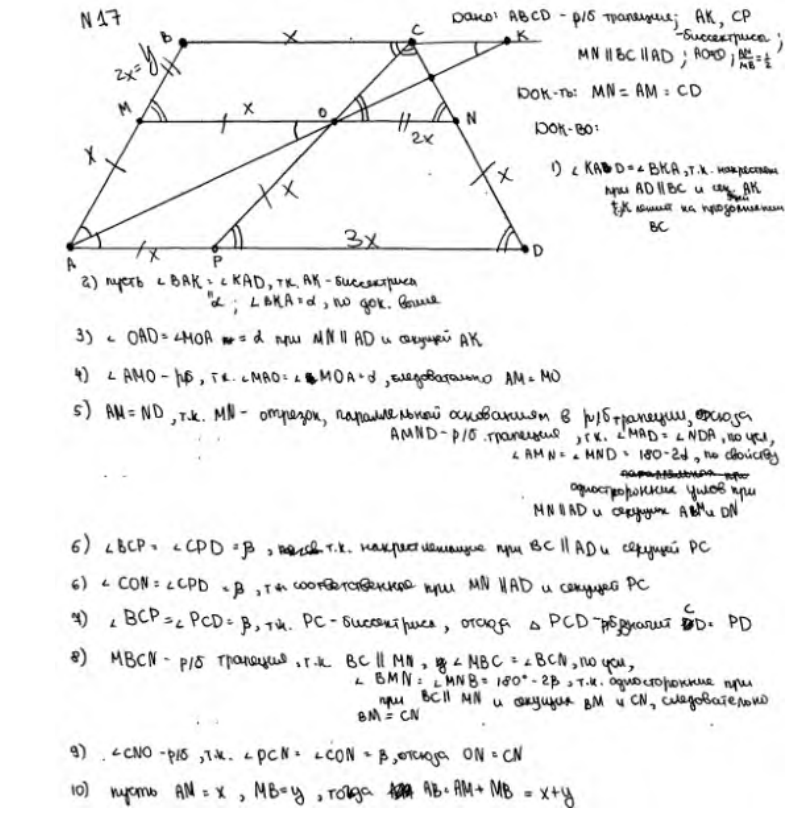 N17
Дано: ABCD - р/б трапеция; AK, CP
-биссектрисы;
MN || BC || AD; AM/MB = 1/2
Док-ть: MN = AM = CD
Док-во:
B x C K
2x = y
M x O 2x N
x x x
A x P 3x D
1) ∠KAD = ∠BKA, т.к. накрестлеж
при AD || BC и сек. AK
т.K лежит на продолжении
BC
2) пусть ∠BAK = ∠KAD, т.к. AK - биссектриса
"α; ∠BKA = α, по док. выше
3) ∠OAD = ∠MOA = α при MN || AD и секущей AK
4) ∠AMO - р/б, т.к. ∠MAO = ∠MOA = α, следовательно AM = MO
5) AM = ND, т.к. MN - отрезок, параллельной основаниям в р/б трапеции, отсюда
AMND - р/б трапеция, т.к. ∠MAD = ∠NDA, по усл,
∠AMN = ∠MND = 180-2α, по свойству
односторонние углов при
MN || AD и секущих AM и DN
6) ∠BCP = ∠CPD = β, т.к. накрестлежащие при BC || AD и секущей PC
6) ∠CON = ∠CPD = β, т.к соответственное при MN || AD и секущей PC
7) ∠BCP = ∠PCD = β, т.к. PC - биссектриса, отсюда △ PCD - р/б, значит CD = PD
8) MBCN - р/б трапеция, т.к BC || MN, ∠MBC = ∠BCN, по усл,
∠BMN = ∠MNB = 180° - 2β, т.к. односторонние при
при BC || MN и секущих BM и CN, следовательно
BM = CN
9) ∠CNO - р/б, т.к. ∠PCN = ∠CON = β, отсюда ON = CN
10) пусть AN = x, MB = y, тогда AB = AM + MB = x + y